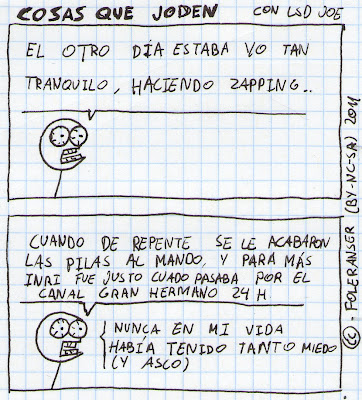 COSAS QUE JODEN
CON LSD JOE
EL OTRO DÍA ESTABA YO TAN
TRANQUILO, HACIENDO ZAPPING..
CUANDO DE REPENTE SE LE ACABARON
LAS PILAS AL MANDO, Y PARA MÁS
INRI FUE JUSTO CUADO PASABA POR EL
CANAL GRAN HERMANO 24 H
NUNCA EN MI VIDA
HABÍA TENIDO TANTO MIEDO
(Y ASCO)
(CC) - FOLERANSER (BY-NC-SA) 2011